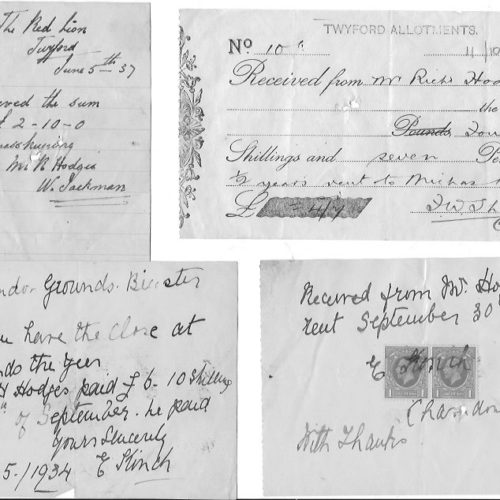 The Red Lion
Twyford
June 5th 37
the sum
£ 2-10-0
Mr R Hodges
W. Jackman
TWYFORD ALLOTMENTS.
No 10
11/10
Received from Mr Richd Hod
the
Pounds Fou
Shillings and seven Pe
½ years rent to Michas
£ 4/7
Grounds. Bicester
have the Close at
the Year
H Hodges paid £ 6-10 Shilling
of September. he paid
Yours Sincerely
5/1934 E Stinch
Received from Mr. Ho
rent September 30
E Stinch
Charndon
With Thanks